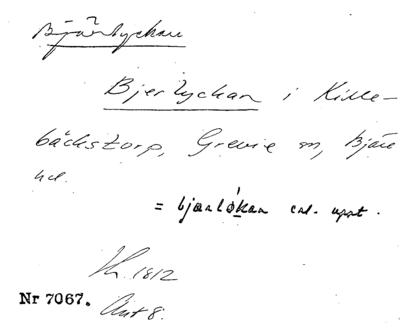 Bjärlyckan
Bjerlyckan i Kille-
bäckstorp, Grevie sn, Bjäre
hd.
= bjærlokan enl. uppt.
1812
Nr 7067.
Akt 8.